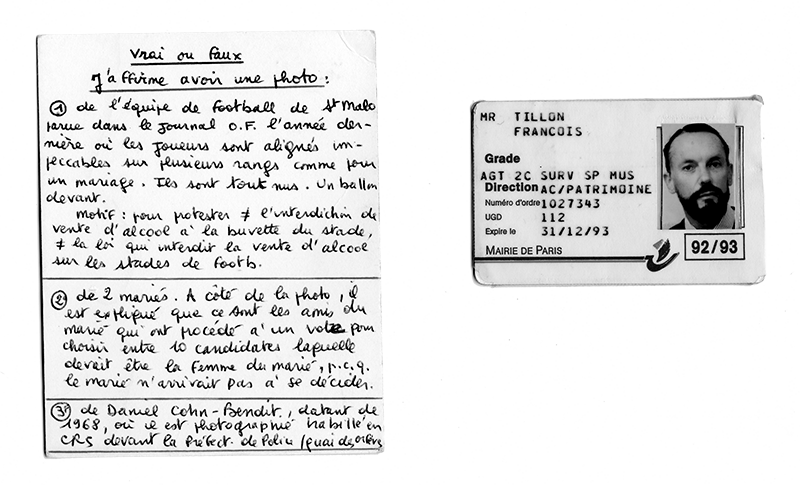 vrai ou faux
J'affirme avoir une photo :
① de l'équipe de football de St Malo
parue dans le journal O.F. l'année der-
nière où les joueurs sont alignés im-
peccables sur plusieurs rangs comme pour
un mariage. Ils sont tout nus. Un ballon
devant.
motif : pour protester ≠ l'interdiction de
vente d'alcool à la buvette du stade,
≠ la loi qui interdit la vente d'alcool
sur les stades de footb.
② de 2 mariés. A côté de la photo, il
est expliqué que ce sont les amis du
marié qui ont procédé à un vote pour
choisir entre 10 candidates laquelle
devait être la femme du marié, p.c.q.
le marié n'arrivait pas à se décider.
③ de Daniel Cohn-Bendit, datant de
1968, où il est photographié habillé en
CRS devant la Préfect. de Police (quai des orfèv
MR TILLON
FRANCOIS
Grade
AGT 2C SURV SP MUS
Direction AC/PATRIMOINE
Numéro d'ordre 1027343
UGD 112
Expire le 31/12/93
MAIRIE DE PARIS
92/93